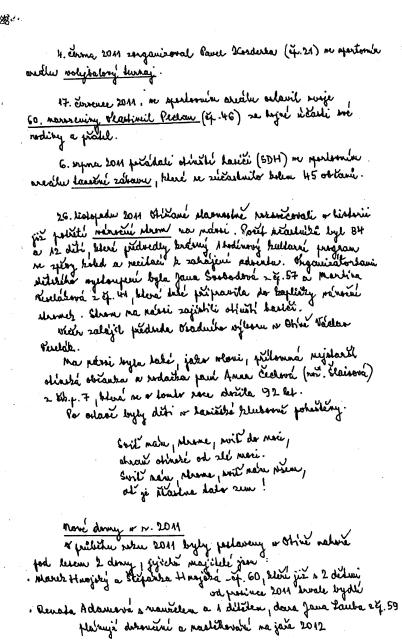 4. června 2011 zorganizoval Pavel Kozderka (čp. 21) ve sportovním
areálu volejbalový turnaj.
17. července 2011, ve sportovním areálu oslavil svoje
60. narozeniny Vlastimil (čp. 46) za hojné účasti své
rodiny a přátel.
6. srpna 2011 pořádali otínští hasiči (SDH) ve sportovním
areálu taneční zábavu, které se zúčastnilo kolem 45 občanů.
26. listopadu 2011 Otíňané slavnostně rozsvěcovali v historii
již pátý vánoční strom na návsi. Počet účastníků byl 84
a 12 dětí, které předvedly krásný hodinový kulturní program
se zpěvy koled a recitací k zahájení adventu. Organizátorkami
dětského vystoupení byla Jana Svobodová z čp. 57 a Martina
z čp. 41, která také připravila do kapličky vánoční
stromek. Strom na návsi zajistili otínští hasiči.
Večer zahájil předseda Osadního výboru v Otíně Václav
Na návsi byla také, jako vloni, přítomna nejstarší
otínská občanka a rodačka paní Anna Čechová (roz. Šlaisová)
z čp. 7, která se v tomto roce dožila 92 let.
Po oslavě byly děti v hasičské klubovně pohoštěny.
Sviť nám, strome, sviť do noci,
chraň otínské od zlé moci.
Sviť nám, strome, sviť nám všem,
ať je šťastná tato zem!
Nové domy v r. 2011
V průběhu roku 2011 byly postaveny v Otíně nahoře
pod lesem 2 domy, jejichž majitelé jsou:
• Marek Hnojský a Štěpánka Hnojská - čp. 60, kteří již s 2 dětmi
od prosince 2011 trvale bydlí
• Renata Adamcová s manželem a 1 dítětem, dcera Jana Lauba z čp. 59
plánují dokončení a nastěhování na jaře 2012